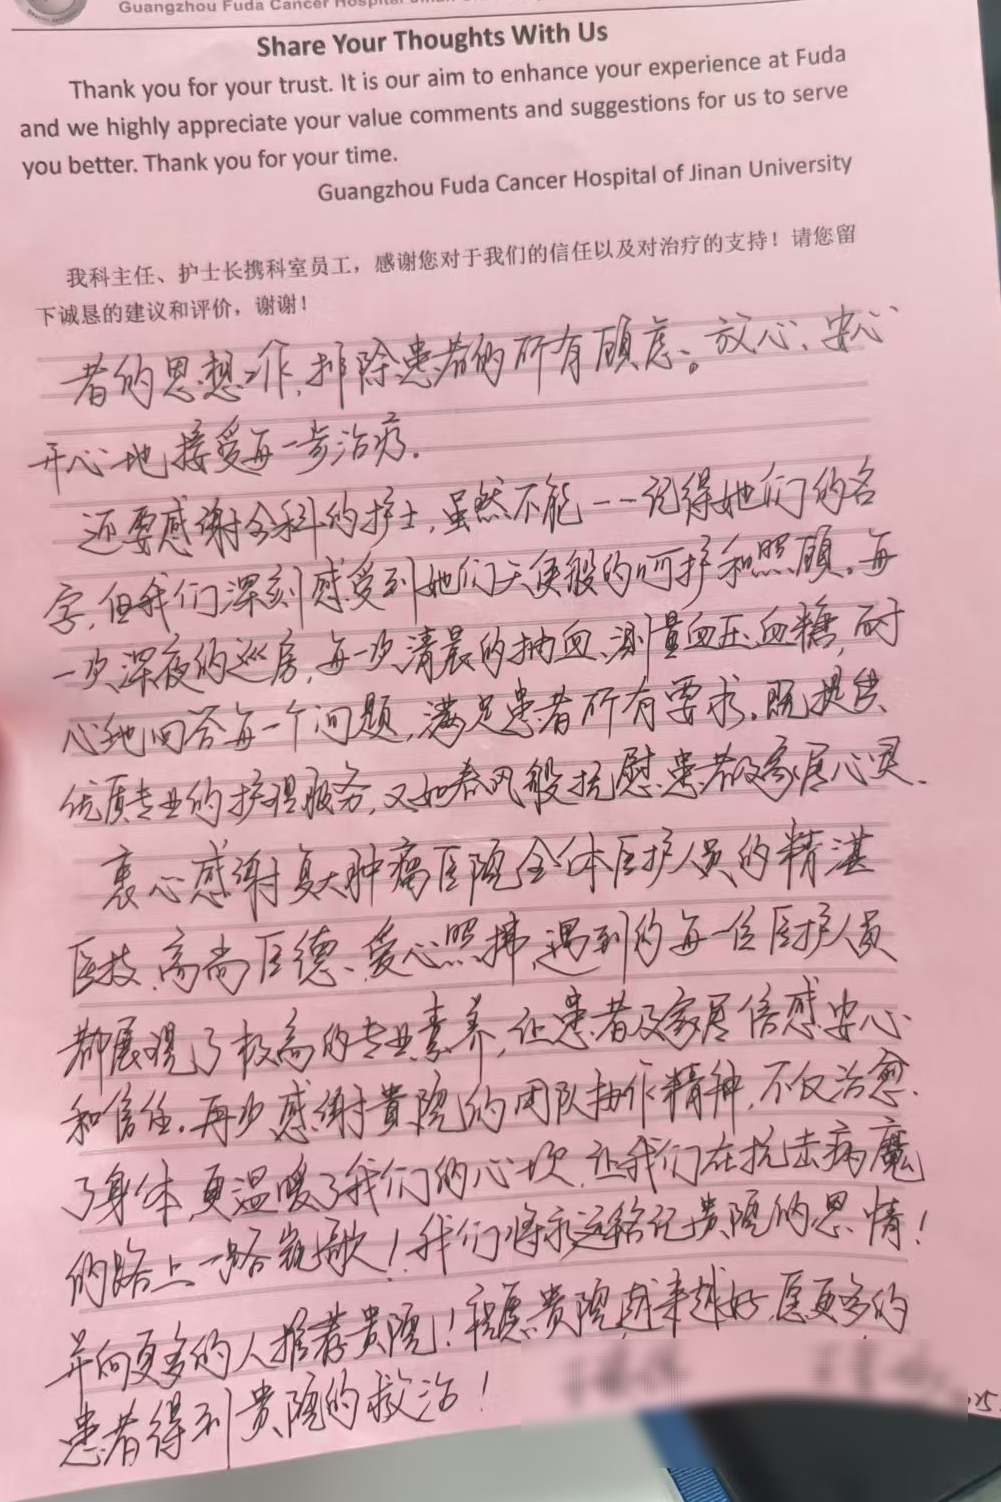 Guangzhou Fuda Cancer Hospital
Share Your Thoughts With Us
Thank you for your trust. It is our aim to enhance your experience at Fuda
and we highly appreciate your value comments and suggestions for us to serve
you better. Thank you for your time.
Guangzhou Fuda Cancer Hospital of Jinan University
我科主任、护士长携科室员工，感谢您对于我们的信任以及对治疗的支持！请您留
下诚恳的建议和评价，谢谢！
者的思想工作，排除患者的所有顾虑。放心、安心
开心地接受每一步治疗.
还要感谢全科的护士，虽然不能一一记得她们的名
字，但我们深刻感受到她们天使般的呵护和照顾。每
一次深夜的巡房，每一次清晨的抽血、测量血压、血糖，耐
心地回答每一个问题，满足患者所有要求。既提供
优质专业的护理服务，又如春风般抚慰患者及家属心灵.
衷心感谢复大肿瘤医院全体医护人员的精湛
医技、高尚医德、爱心照拂，遇到的每一位医护人员
都展现了极高的专业素养，让患者及家属倍感安心
和信任。再次感谢貴院的团队协作精神，不仅治愈
了身体，更温暖了我们的心坎，让我们在抗击病魔
的路上一路凯歌！我们将永远铭记貴院的恩情！
并向更多的人推荐贵院！祝愿贵院越来越好，愿更多的
患者得到贵院的救治！